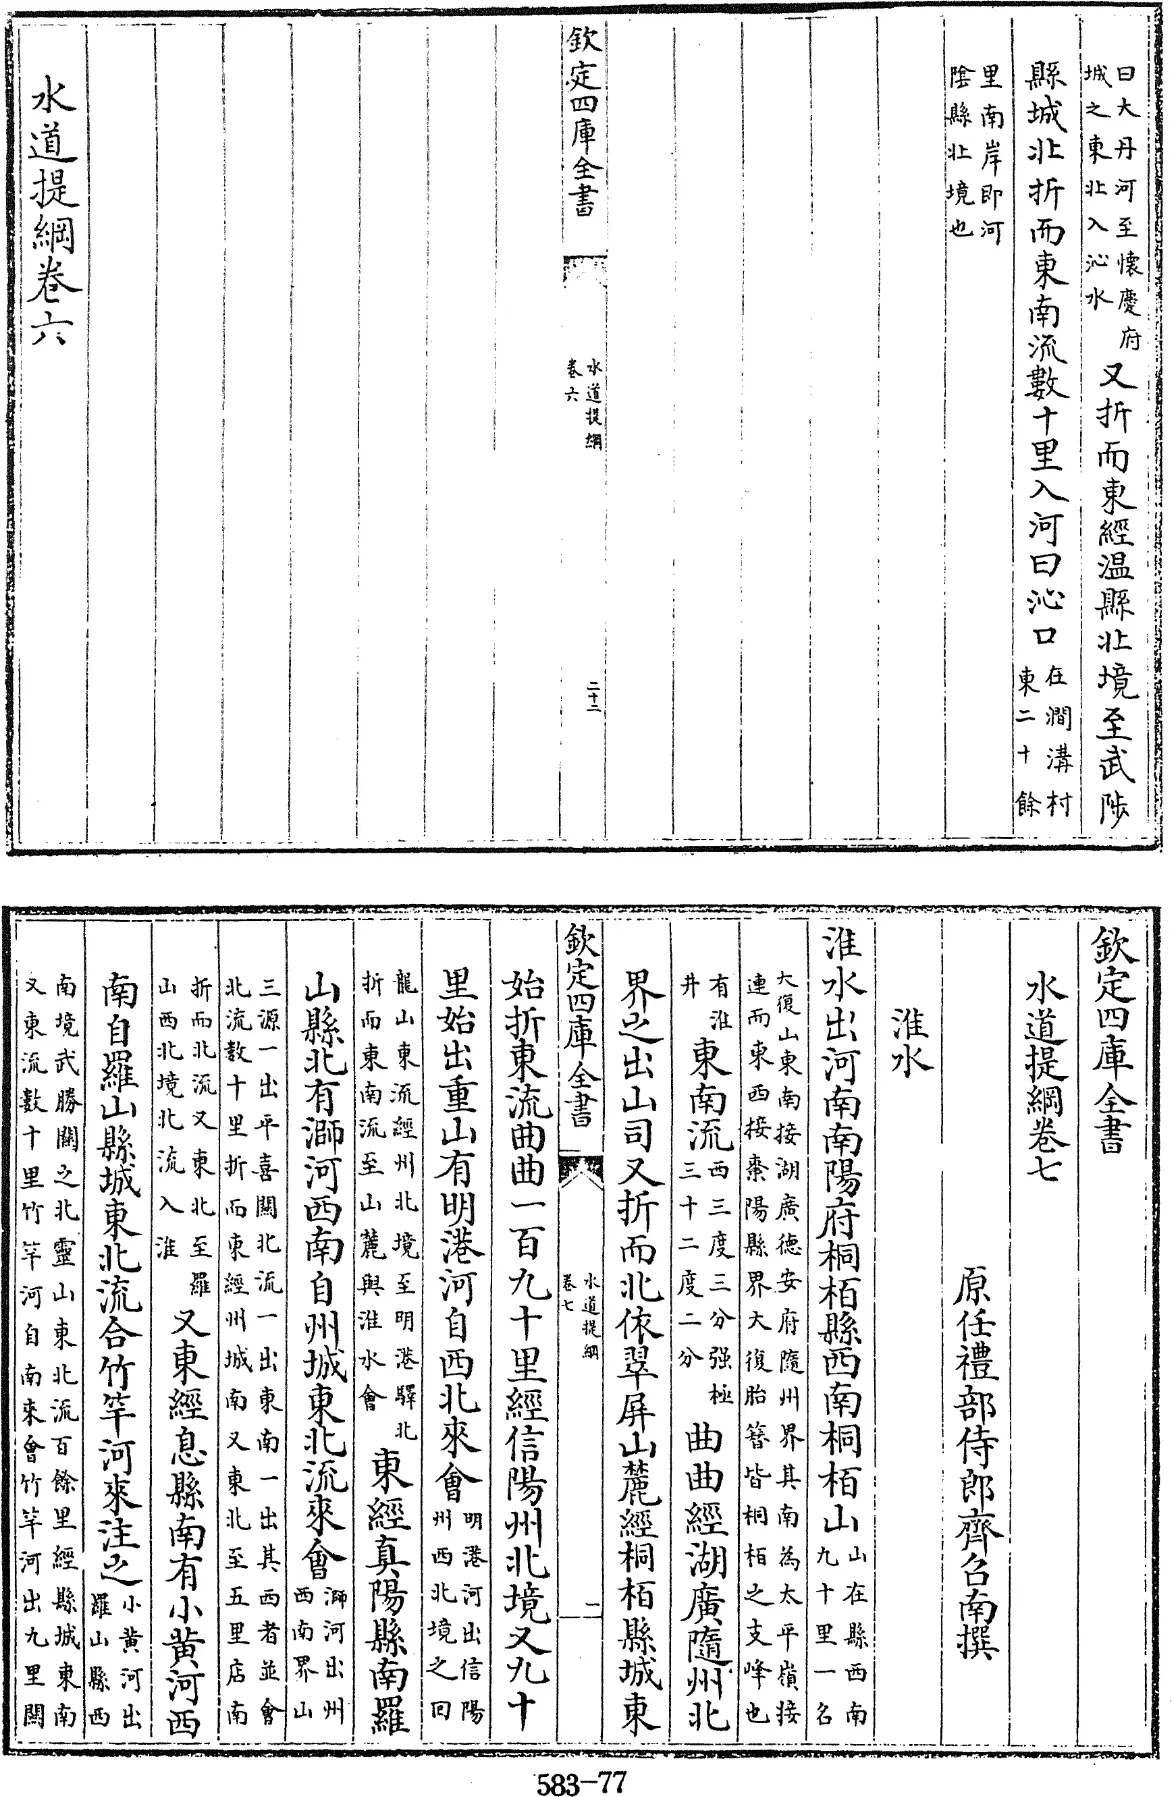 曰大丹河至懷慶府
城之東北入沁水
又折而東經温縣北境至武陟
縣城北折而東南流數十里入河曰沁口
在澗溝村
東二十餘
里南岸即河
陰縣北境也
欽定四庫全書
水道提綱
卷六
二十二
水道提綱卷六
欽定四庫全書
水道提綱卷七
原任禮部侍郎齊召南撰
淮水
淮水出河南南陽府桐栢縣西南桐栢山
山在縣西南
九十里一名
大復山東南接湖廣德安府隨州界其南為太平嶺接
連而東西接棗陽縣界大復胎簪皆桐栢之支峰也
有淮
井
東南流
西三度三分強極
三十二度二分
曲曲經湖廣隨州北
界之出山司又折而北依翠屏山麓經桐栢縣城東
欽定四庫全書
水道提綱
卷七
一
始折東流曲曲一百九十里經信陽州北境又九十
里始出重山有明港河自西北來會
明港河出信陽
州西北境之回
龍山東流經州北境至明港驛北
折而東南流至山麓與淮水會
東經真陽縣南羅
山縣北有溮河西南自州城東北流來會
溮河出州
西南界山
三源一出平喜關北流一出東南一出其西者並會
北流數十里折而東經州城南又東北至五里店南
折而北流又東北至羅
山西北境北流入淮
又東經息縣南有小黄河西
南自羅山縣城東北流合竹竿河來注之
小黄河出
羅山縣西
南境武勝關之北靈山東北流百餘里經縣城東南
又東流數十里竹竿河自南來會竹竿河出九里關
583-77